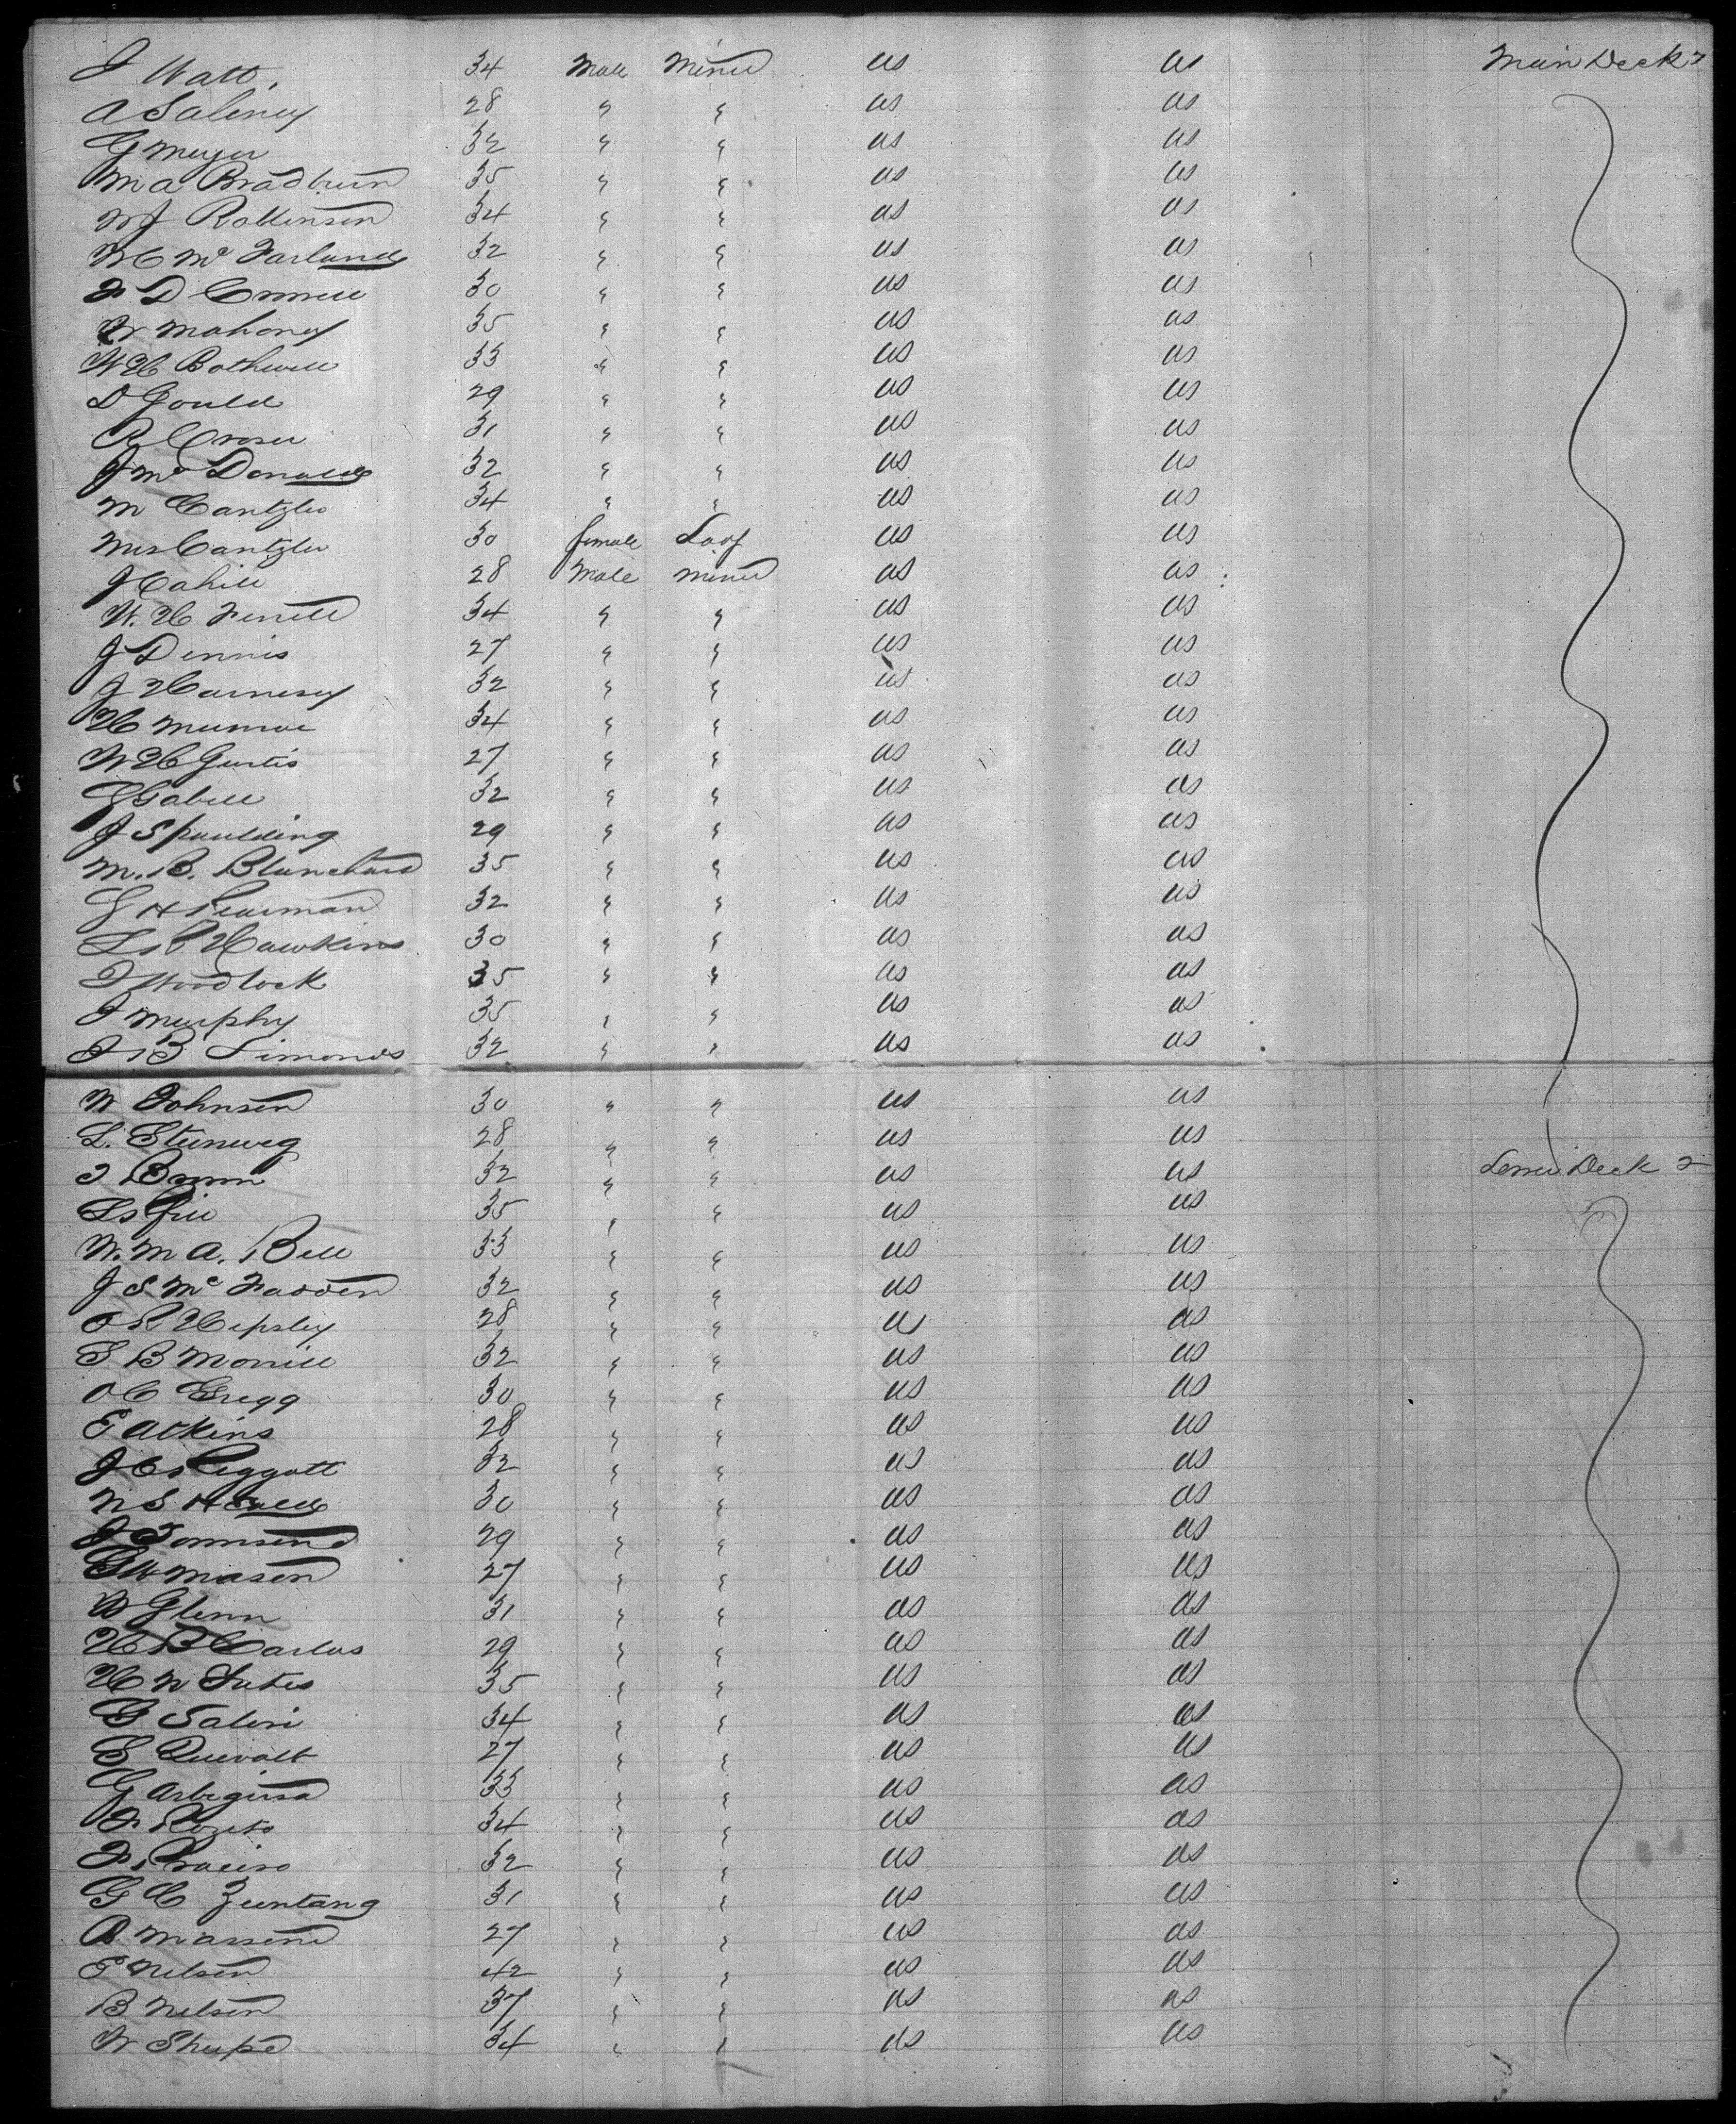 J Watt, 34 Male Miner US US Main Deck
A Saliney 28 " " US US
G Meyer 32 " " US US
M A Bradburn 35 " " US US
W J Rollinson 34 " " US US
W C McFarland 32 " " US US
F D 30 " " US US
W Mahoney 35 " " US US
W H Bothwell 33 " " US US
D Gould 29 " " US US
R Croser 31 " " US US
J McDonald 32 " " US US
M Cantzler 34 " " US US
Mrs Cantzler 30 female Lady US US
J Cahill 28 Male Miner US US
W. H Ferrell 34 " " US US
J Dennis 27 " " US US
J Harnesy 32 " " US US
H Munroe 34 " " US US
W H Gurtis 27 " " US US
Gabell 32 " " US US
J Spaulding 29 " " US US
M. B. Blanchard 35 " " US US
G H Pearman 32 " " US US
L P Hawkins 30 " " US US
T Woodlock 35 " " US US
J Murphy 35 " " US US
J B Simonds 32 " " US US
W Johnson 30 " " US US
L. Steinweg 28 " " US US
J Brown 32 " " US US Lower Deck
35 " " US US
W. M A. Bell 33 " " US US
J S McFadden 32 " " US US
Hepsley 28 " " US US
S B Morrill 32 " " US US
O C Gregg 30 " " US US
E Atkins 28 " " US US
J C Piggott 32 " " US US
N S Heald 30 " " US US
J Townsend 29 " " US US
G W Mason 27 " " US US
W Glenn 31 " " US US
H B Carlos 29 " " US US
H W Lutes 35 " " US US
G Saleri 34 " " US US
S Duvalt 27 " " US US
G 33 " " US US
F 34 " " US US
F 32 " " US US
G C Zuntang 31 " " US US
A Massend 27 " " US US
P Nelson 42 " " US US
B Nelson 37 " " US US
W Shupe 34 " " US US